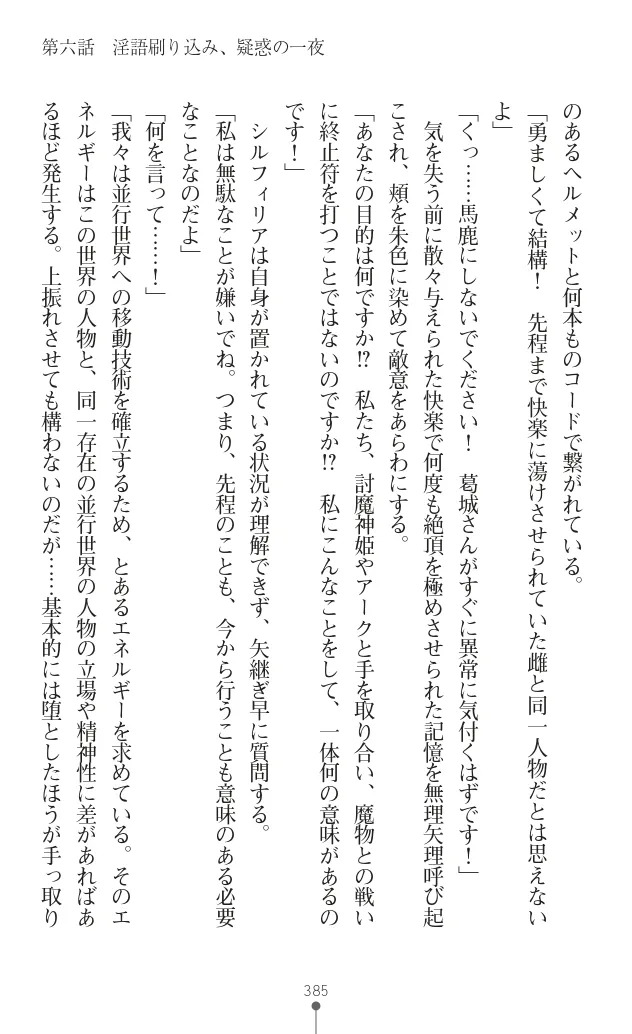 第六話　淫語刷り込み、疑惑の一夜
のあるヘルメットと何本ものコードで繋がれている。
「勇ましくて結構！　先程まで快楽に蕩けさせられていた雌と同一人物だとは思えない
よ」
「くっ……馬鹿にしないでください！　葛城さんがすぐに異常に気付くはずです！」
　気を失う前に散々与えられた快楽で何度も絶頂を極めさせられた記憶を無理矢理呼び起
こされ、頬を朱色に染めて敵意をあらわにする。
「あなたの目的は何ですか!?　私たち、討魔神姫やアークと手を取り合い、魔物との戦い
に終止符を打つことではないのですか!?　私にこんなことをして、一体何の意味があるの
です！」
　シルフィリアは自身が置かれている状況が理解できず、矢継ぎ早に質問する。
「私は無駄なことが嫌いでね。つまり、先程のことも、今から行うことも意味のある必要
なことなのだよ」
「何を言って……！」
「我々は並行世界への移動技術を確立するため、とあるエネルギーを求めている。そのエ
ネルギーはこの世界の人物と、同一存在の並行世界の人物の立場や精神性に差があればあ
るほど発生する。上振れさせても構わないのだが……基本的には堕としたほうが手っ取り
385